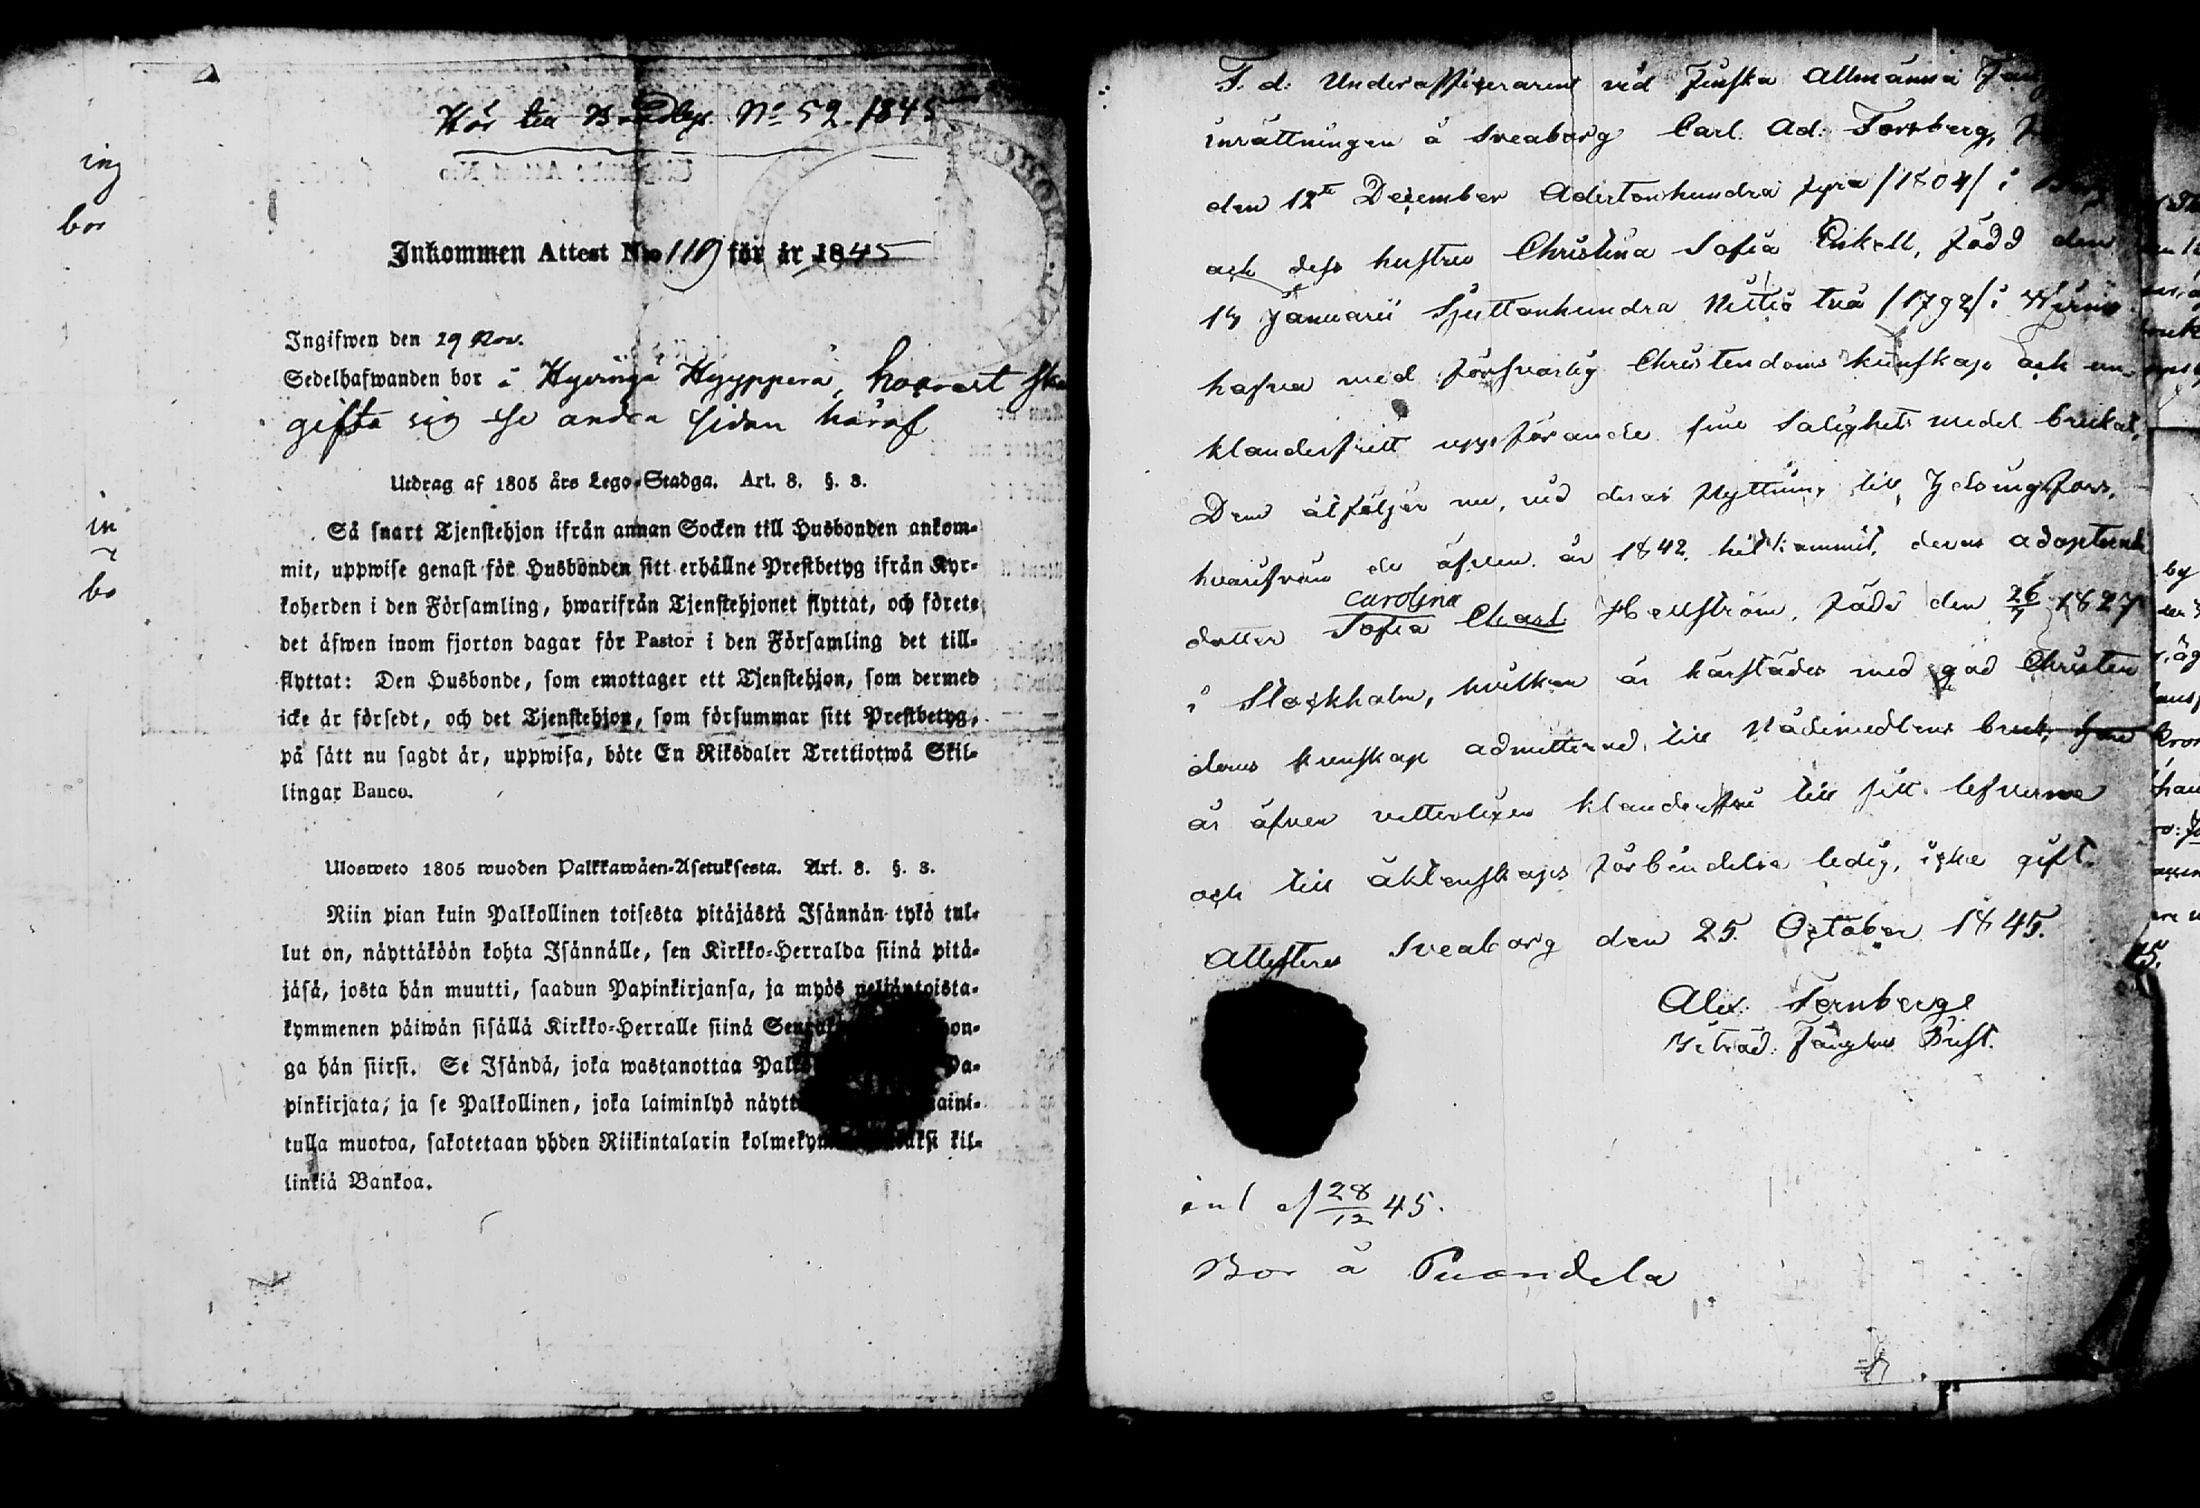 Hör till No 52. 1845
Inkommen Attest No 119 för år 1845
Ingifwen den 29 Nov.
Sedelhafwanden bor i Hyvinge Hyyppärä, hvarest
gifta sig se andra sidan häraf
Utdrag af 1805 års Lego-Stadga. Art. 8. §. 3.
Så snart Tjenstehjon ifrån annan Socken till Husbonden ankom-
mit, uppwise genast för Husbonden sitt erhållne Prestbetyg ifrån Kyr-
koherden i den Församling, hwarifrån Tjenstehjonet flyttat, och förete
det äfwen inom fjorton dagar för Pastor i den Församling det till-
flyttat: Den Husbonde, som emottager ett Tjenstehjon, som dermed
icke är försedt, och det Tjenstehjon, som försummar sitt Prestbetyg,
på sätt nu sagdt är, uppwisa, böte En Riksdaler Trettiotwå Skil-
lingar Banco.
Ulosweto 1805 wuoden Palkkawäen-Asetuksesta. Art. 8. §. 3.
Niin pian kuin Palkollinen toisesta pitäjästä Isännän tykö tul-
lut on, näyttäköön kohta Isännälle, sen Kirkko-Herralda siinä pitä-
jäsä, josta hän muutti, saadun Papinkirjansa, ja myös neljäntoista-
kymmenen päiwän sisällä Kirkko-Herralle siinä hon-
ga hän siirsi. Se Isändä, joka wastanottaa Pa-
pinkirjata, ja se Palkollinen, joka laiminlyö näytt aini-
tulla muotoa, sakotetaan yhden Riikintalarin kil-
linkiä Bankoa.
F. d. Underofficeraren vid Finska Allmänna
inrättningen å Sveaborg Carl. Ad. Forsberg,
den 12te December Adertonhundra fyra /1804/ i
och dess hustru Christina Sofia Enkell, född den
13 Januarii Sjuttonhundra Nittio två /1792/ i
hafva med försvarlig Christendoms kunskap och en
klanderfritt uppförande sine Salighets medel brukat.
Dem åtföljer nu, vid deras flyttning till Helsingfors,
hvarifrån de äfven år 1842 hitkommit, deras adopterade
Carolina
dotter Sofia Charl. Hellström, född den 26/7 1827
i Stockholm, hvilken är härstädes med god Christen
doms kunskap admitterad till Nådemedlens bruk,
är äfven vetterligen klanderfri till sitt lefverne
och till äktenskaps förbindelse ledig, icke gift.
Attesteras Sveaborg den 25. October 1845.
Alex. Fernberg
Biträd. Fånghus Prest.
28/12 45.
Bor å